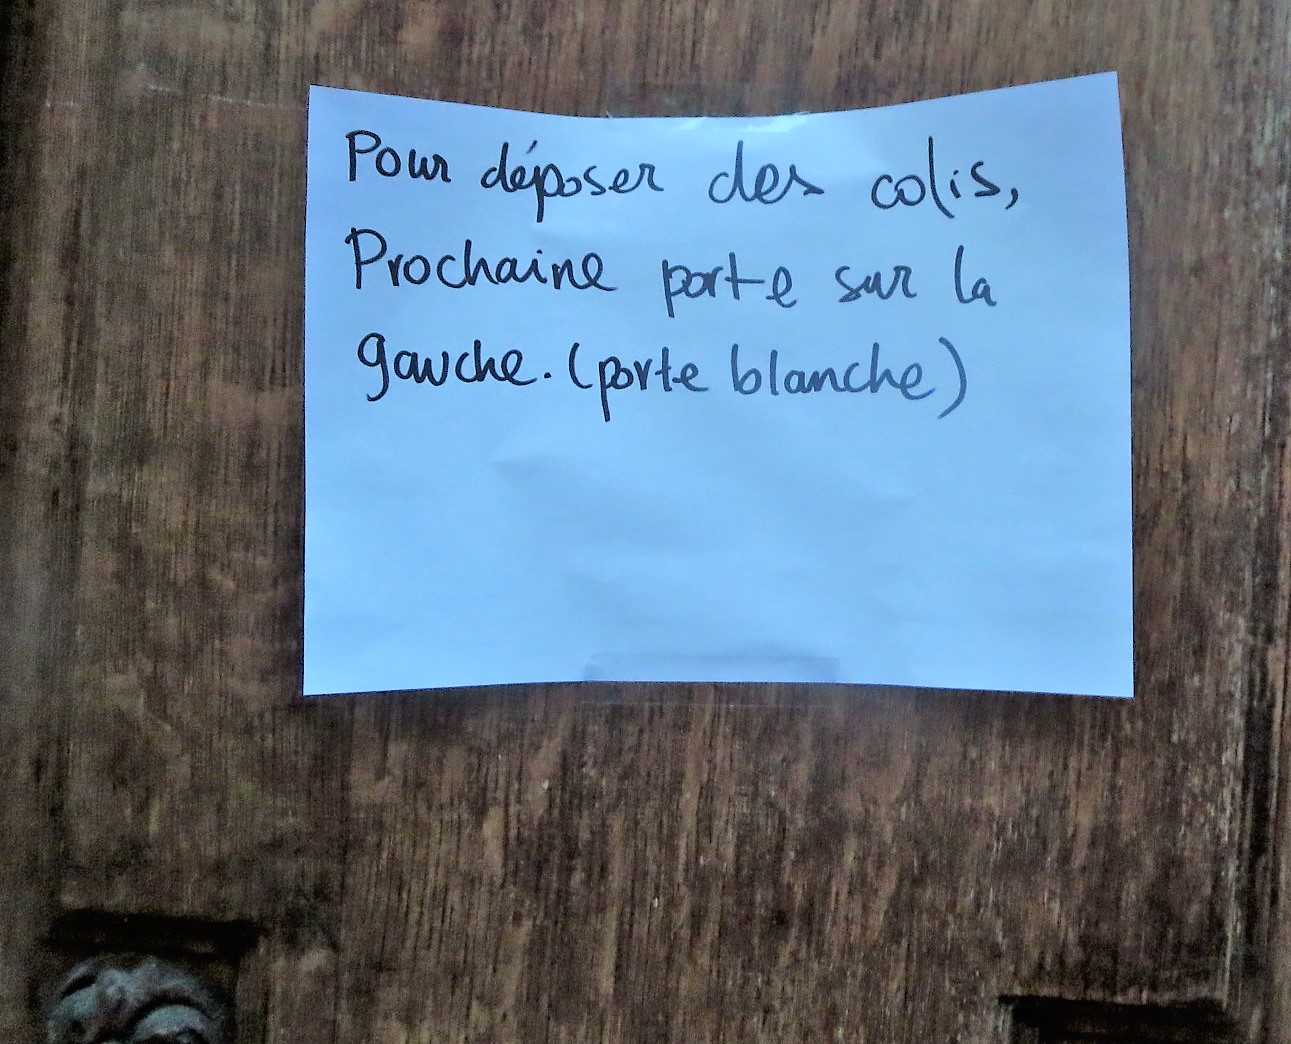 Pour déposer des colis,
Prochaine porte sur la
gauche. (porte blanche)